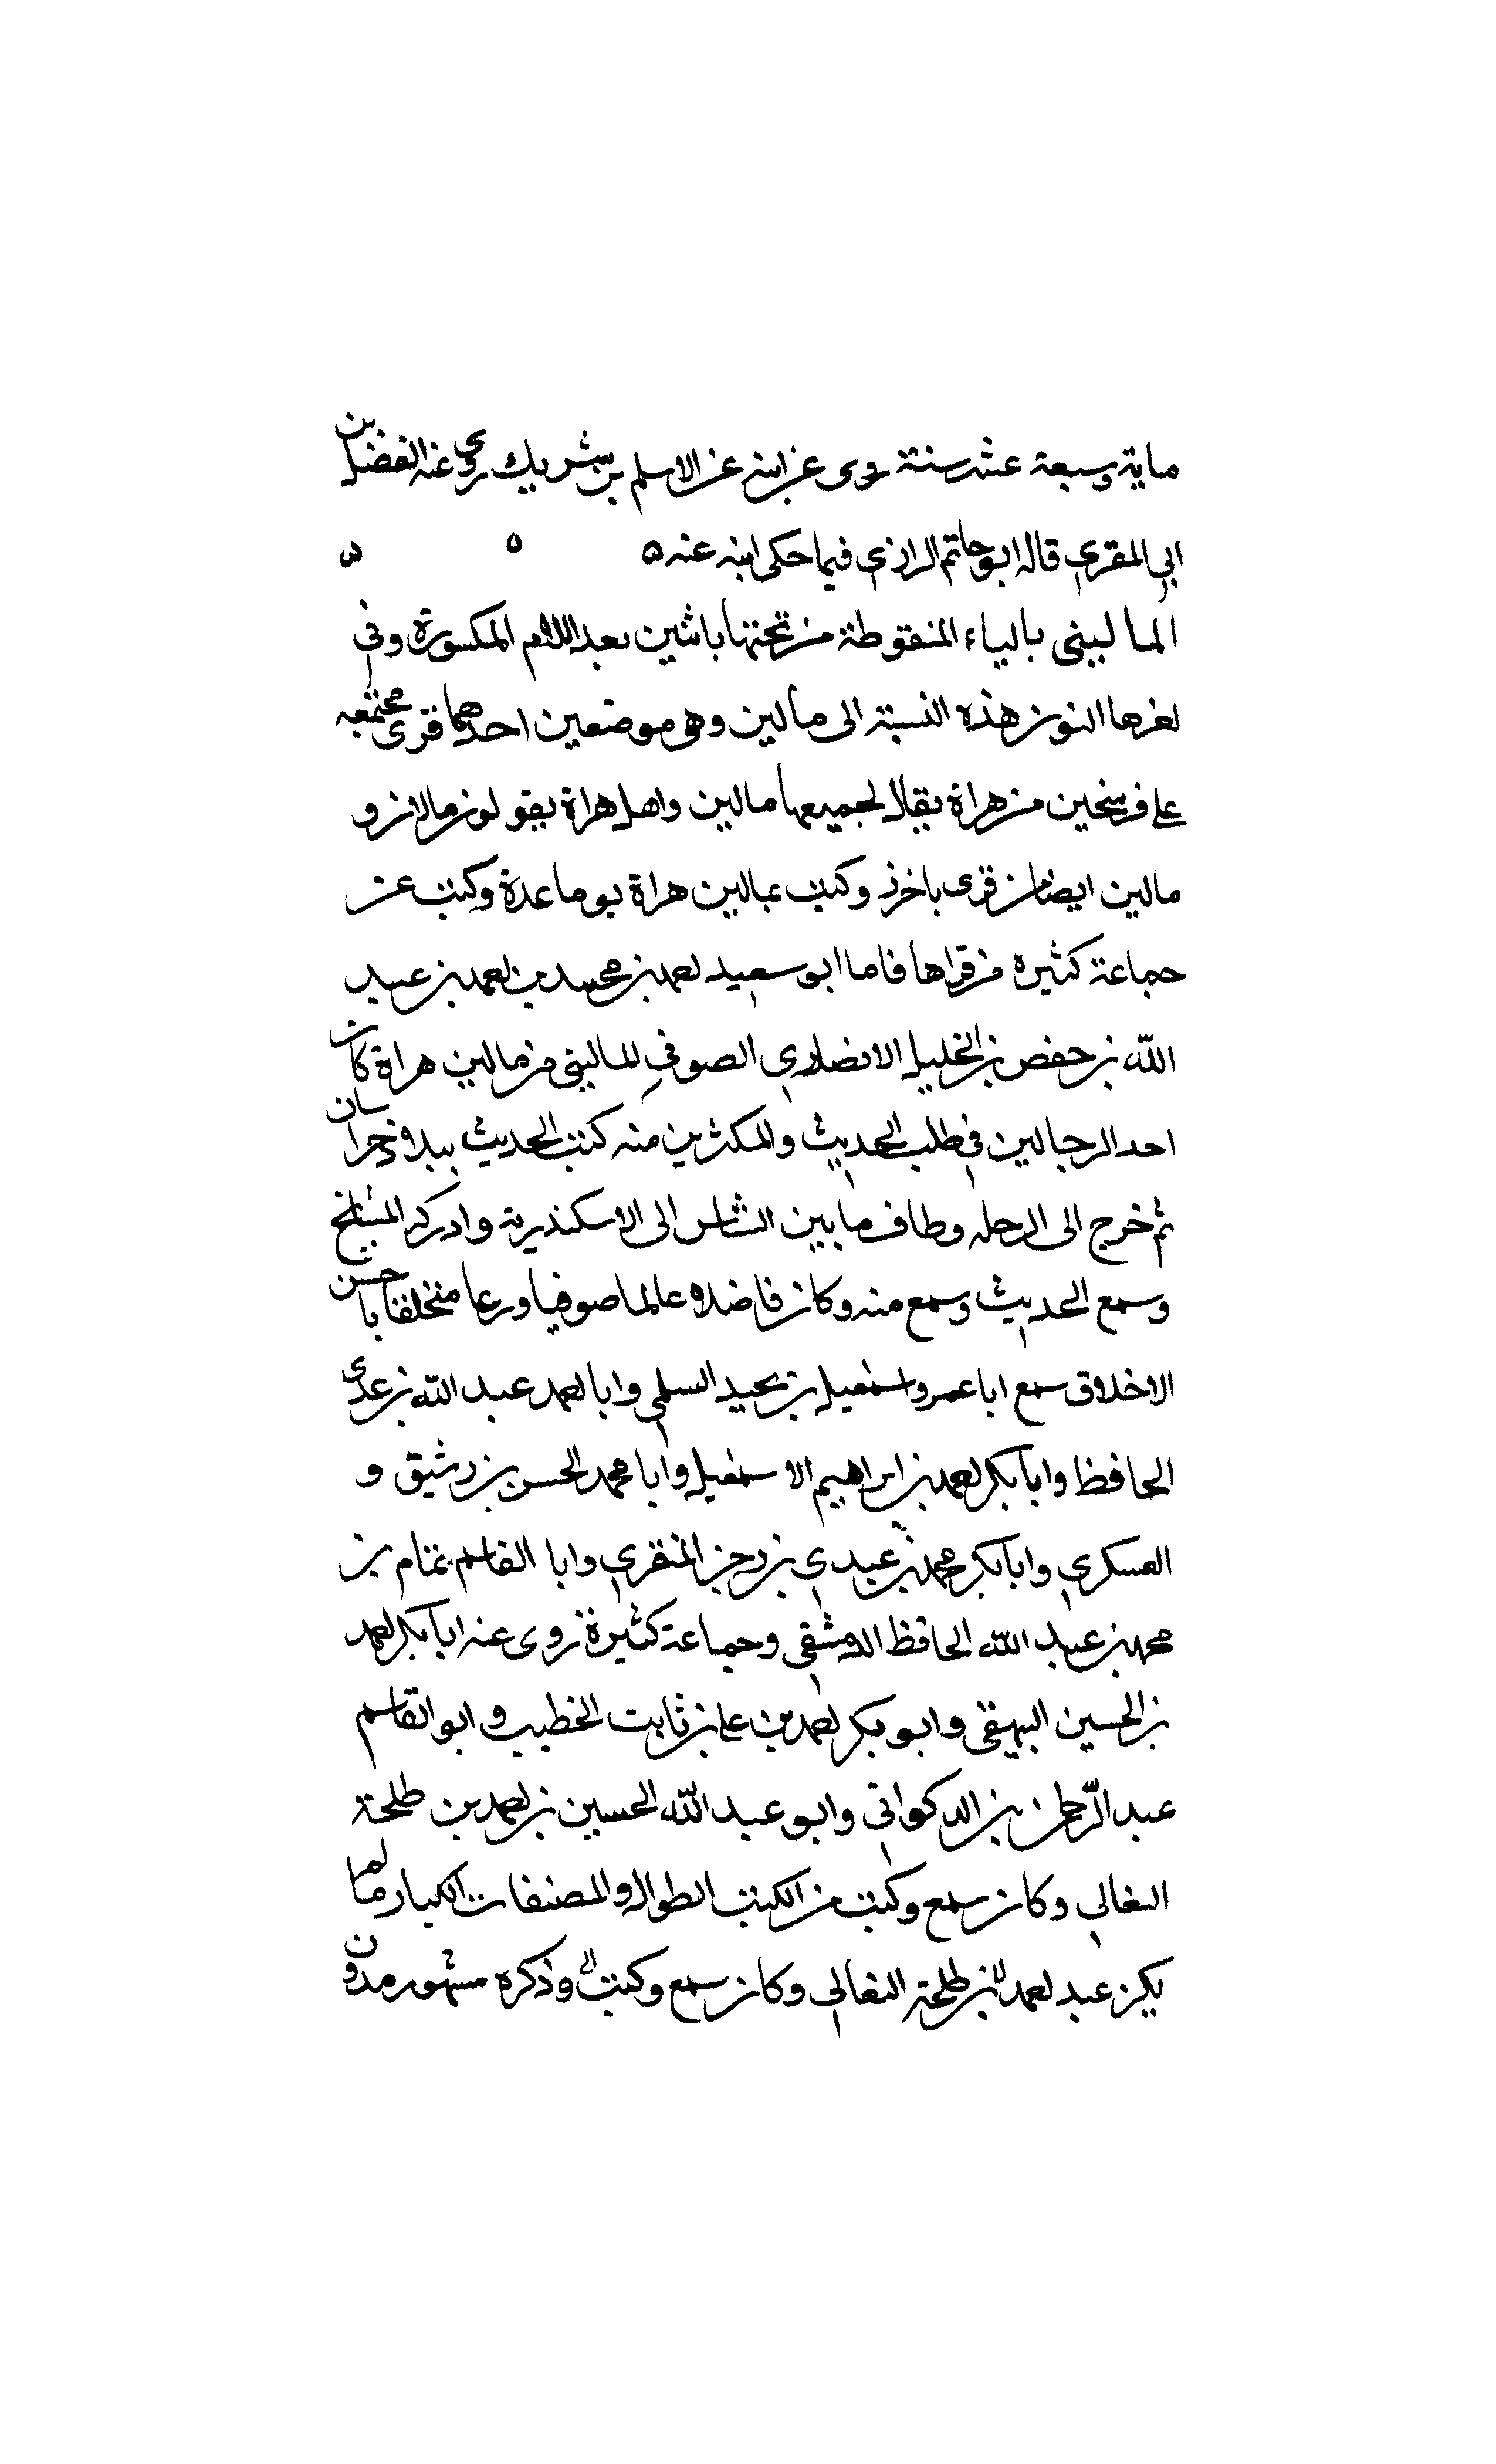 ماية وسبعة عشر سنة روى عن ابيه عن الاسلم بن شريك روى عنه الفضل بن
ابي المقرى قاله ابو حاتم الرازي فيما حكى ابنه عنه ه ه ه
الماليني بالياء المنقوطة من تحتها باثنين بعد اللام المكسورة وفي
اخرها النون هذه النسبة الى مالين وهي موضعين احدهما قرى مجتمعه
على فرسخين من هراة يقال لجميعها مالين واهل هراة يقولون مالان و
مالين ايضا من قرى باخرز وكنت بمالين هراة يوما عدة وكتبت عن
جماعة كثيره من قراها فاما ابو سعيد احمد بن محمد بن احمد بن عبد
الله بن حفص بن الخليل الانصاري الصوفي الماليني من مالين هراة كان
احد الرحالين في طلب الحديث والمكثرين منه كتب الحديث ببلاد خراسان
ثم خرج الى الرحله وطاف ما بين الشاس الى الاسكندرية وادرك المشايخ
وسمع الحديث وسمع منه وكان فاضلا عالما صوفيا ورعا متخلقا باحسن
الاخلاق سمع ابا عمرو اسمعيل بن نجيد السلمي وابا احمد عبد الله بن عدى
الحافظ وابا بكر احمد بن ابراهيم الاسمعيلي وابا محمد الحسن بن رشيق و
العسكري وابا بكر محمد بن عبدي بن زحر المنقري وابا القاسم تمام بن
محمد بن عبد الله الحافظ الدمشقي وجماعة كثيرة روى عنه ابا بكر احمد
بن الحسين البيهقي وابو بكر احمد بن علي بن ثابت الخطيب وابو القاسم
عبد الرحمن بن الدكواني وابو عبد الله الحسين بن احمد بن طلحة
النعالي وكان سمع وكتب من الكتب الطوال والمصنفات الكبار ما لم
يكن عبد احمد بن طلحة النعالي وكان سمع وكتب وذكره مشهور مدون